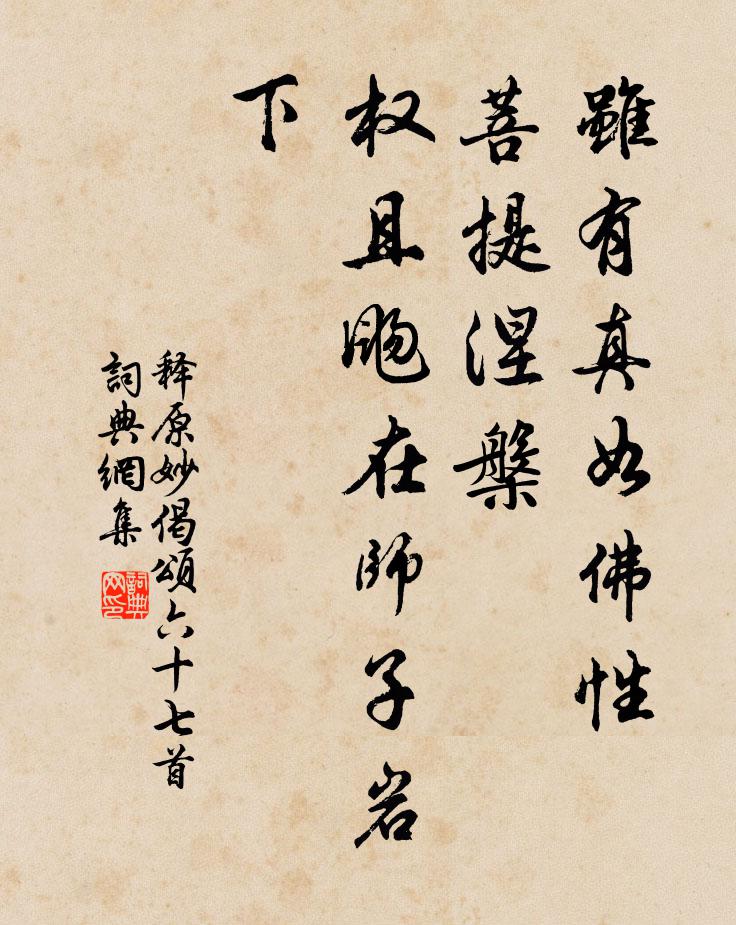 雖有真如佛性
菩提涅槃
权且颺在師子岩
下
释原妙偈頌六十七首
詞典網集
詞典网印